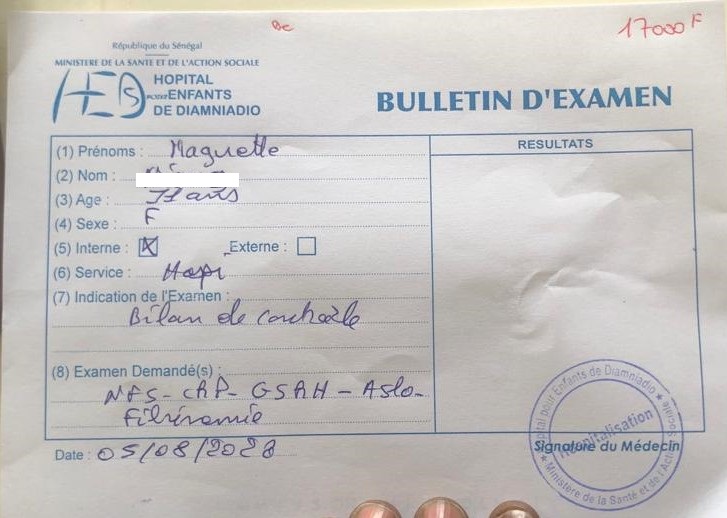 17000 F
République du Sénégal
MINISTERE DE LA SANTE ET DE L'ACTION SOCIALE
HOPITAL
POUR ENFANTS
DE DIAMNIADIO
BULLETIN D'EXAMEN
(1) Prénoms : Maguette
(2) Nom :
(3) Age : ans
(4) Sexe : F
(5) Interne : Externe :
(6) Service : Hopi
(7) Indication de l'Examen :
Bilan de contrôle
(8) Examen Demandé(s) :
NFS - CRP - GSAH - Aslo -
Fibrinémie
Date : 05/08/2023
RESULTATS
Signature du Médecin
Hôpital pour Enfants de Diamniadio
Hospitalisation
Ministère de la Santé et de l'Action Sociale